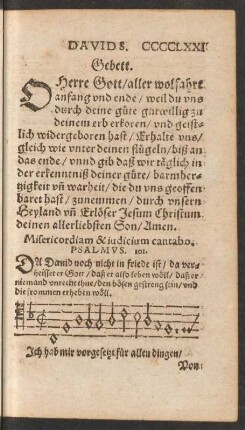 DAVIDS. CCCCLXXI
Gebett.
OHerre Gott/aller wolfahrt
anfang vnd ende/ weil du vns
durch deine güte gutwillig zu
deinem erb erkoren/ vnd geist-
lich widergeboren hast/ Erhalte vns/
gleich wie vnter deinen flügeln/ biß an
das ende/ vnnd gib daß wir täglich in
der erkenntniß deiner güte/ barmher-
tzigkeit vñ warheit/ die du vns geoffen-
baret hast/ zunemmen/ durch vnsern
Heyland vñ Erlöser Jesum Christum
deinen allerliebsten Son/ Amen.
Misericordiam & iudicium cantabo.
PSALMVS. 101.
DA Dauid noch nicht in friede ist/ da ver-
heisset er Gott/ daß er also leben wöll/ daß er
niemand vnrecht thue/ den bösen gestreng sein/ vnd
die frommen erheben wöll.
Ich hab mir vorgesetzt für allen dingen/
Von